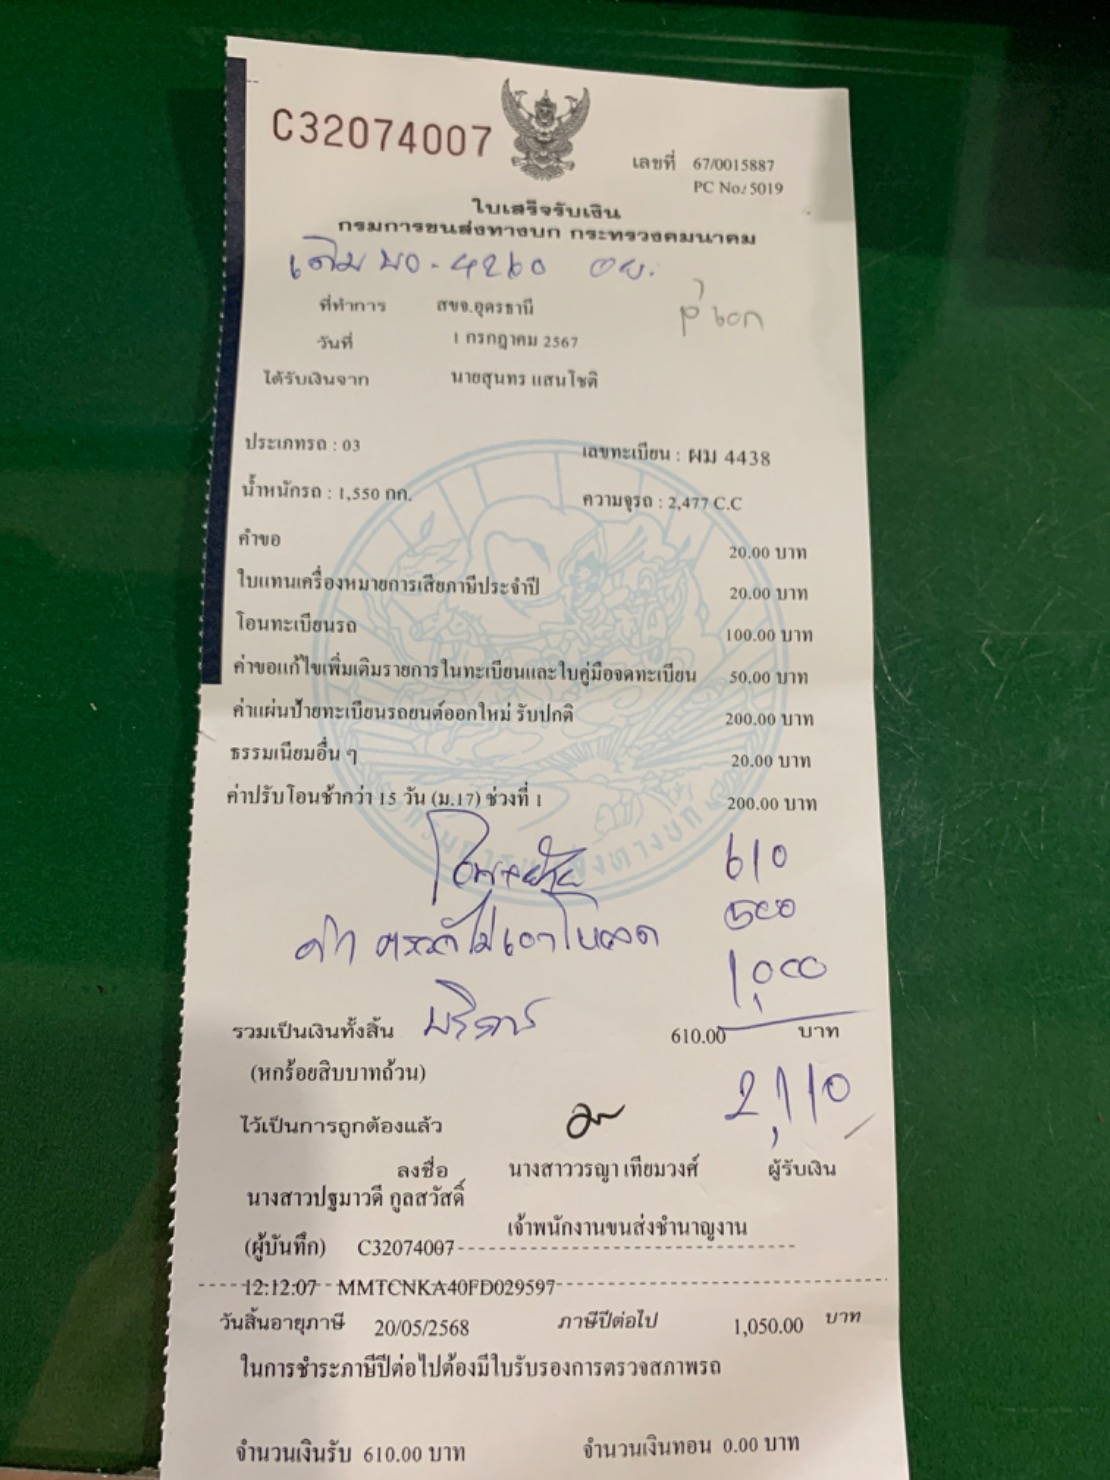 C32074007
เลขที่ 67/0015887
PC No: 5019
ใบเสร็จรับเงิน
กรมการขนส่งทางบก กระทรวงคมนาคม
เดิม บอ-4260 อย.
ที่ทำการ สขจ.อุดรธานี
วันที่ 1 กรกฎาคม 2567
ได้รับเงินจาก นายสุนทร แสนโชติ
ประเภทรถ : 03 เลขทะเบียน : ผม 4438
น้ำหนักรถ : 1,550 กก. ความจุรถ : 2,477 C.C
คำขอ 20.00 บาท
ใบแทนเครื่องหมายการเสียภาษีประจำปี 20.00 บาท
โอนทะเบียนรถ 100.00 บาท
ค่าขอแก้ไขเพิ่มเติมรายการในทะเบียนและใบคู่มือจดทะเบียน 50.00 บาท
ค่าแผ่นป้ายทะเบียนรถยนต์ออกใหม่ รับปกติ 200.00 บาท
ธรรมเนียมอื่น ๆ 20.00 บาท
ค่าปรับโอนช้ากว่า 15 วัน (ม.17) ช่วงที่ 1 200.00 บาท
610
500
1,000
บริการ
รวมเป็นเงินทั้งสิ้น 610.00 บาท
(หกร้อยสิบบาทถ้วน) 2,110
ไว้เป็นการถูกต้องแล้ว
ลงชื่อ นางสาววรญา เทียมวงศ์ ผู้รับเงิน
นางสาวปฐมาวดี กูลสวัสดิ์
เจ้าพนักงานขนส่งชำนาญงาน
(ผู้บันทึก) C32074007
12:12:07 MMTCNKA40FD029597
วันสิ้นอายุภาษี 20/05/2568 ภาษีปีต่อไป 1,050.00 บาท
ในการชำระภาษีปีต่อไปต้องมีใบรับรองการตรวจสภาพรถ
จำนวนเงินรับ 610.00 บาท จำนวนเงินทอน 0.00 บาท